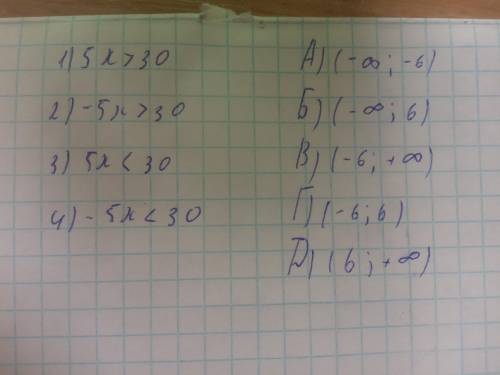 1) 5x > 30
2) -5x > 30
3) 5x < 30
4) -5x < 30
А) (-∞; -6)
Б) (-∞; 6)
В) (-6; +∞)
Г) (-6; 6)
D) (6; +∞)